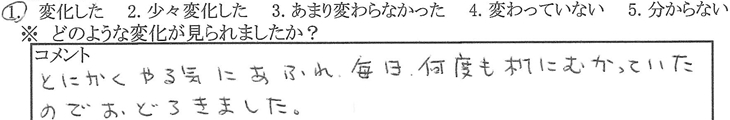 1. 変化した 2. 少々変化した 3. あまり変わらなかった 4. 変わっていない 5. 分からない
※ どのような変化が見られましたか？
コメント
とにかくやる気にあふれ、毎日、何度も机にむかっていた
のでおどろきました。